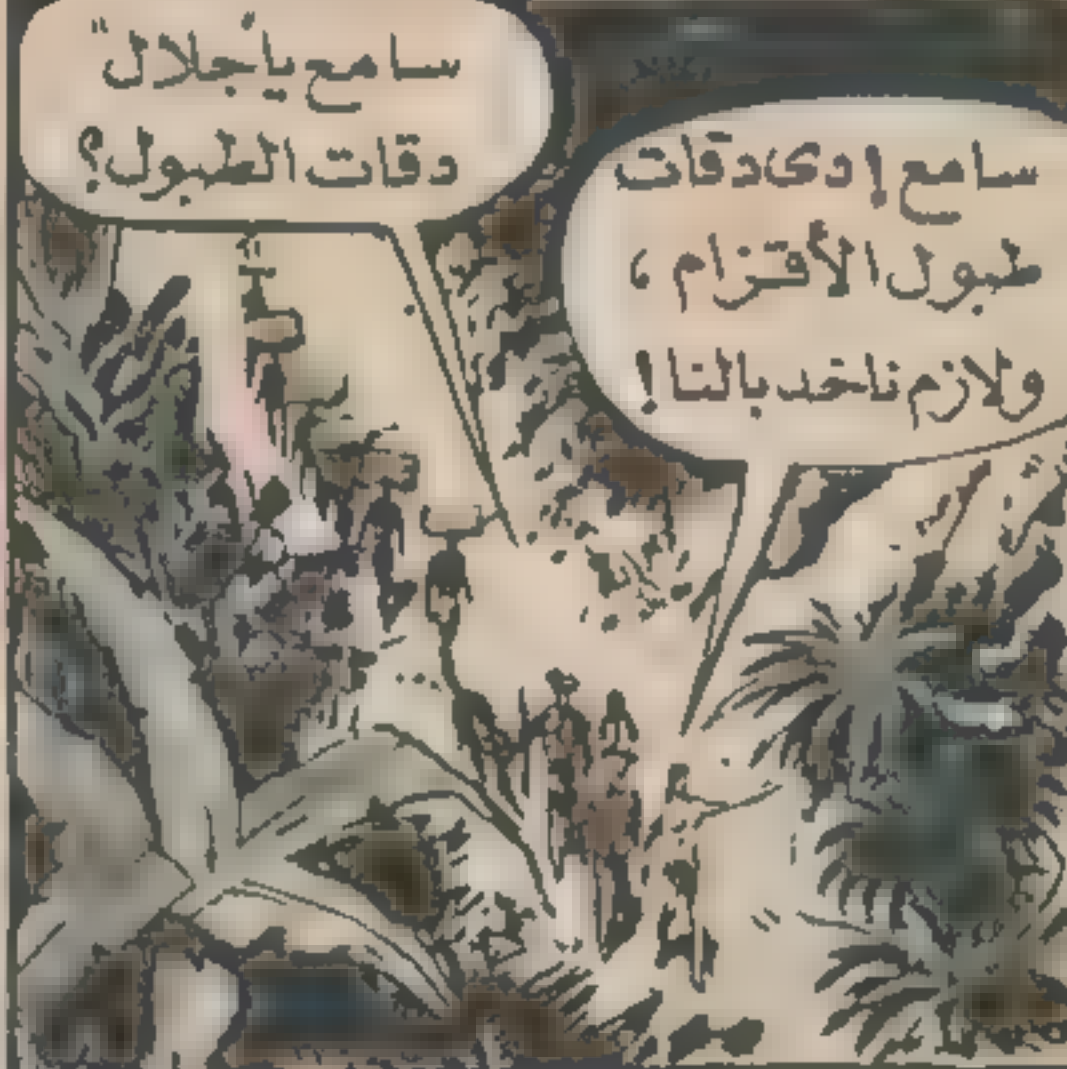 سامع يا "جلال"
دقات الطبول؟
سامع! دى دقات
طبول الأقزام،
ولازم ناخد بالنا!